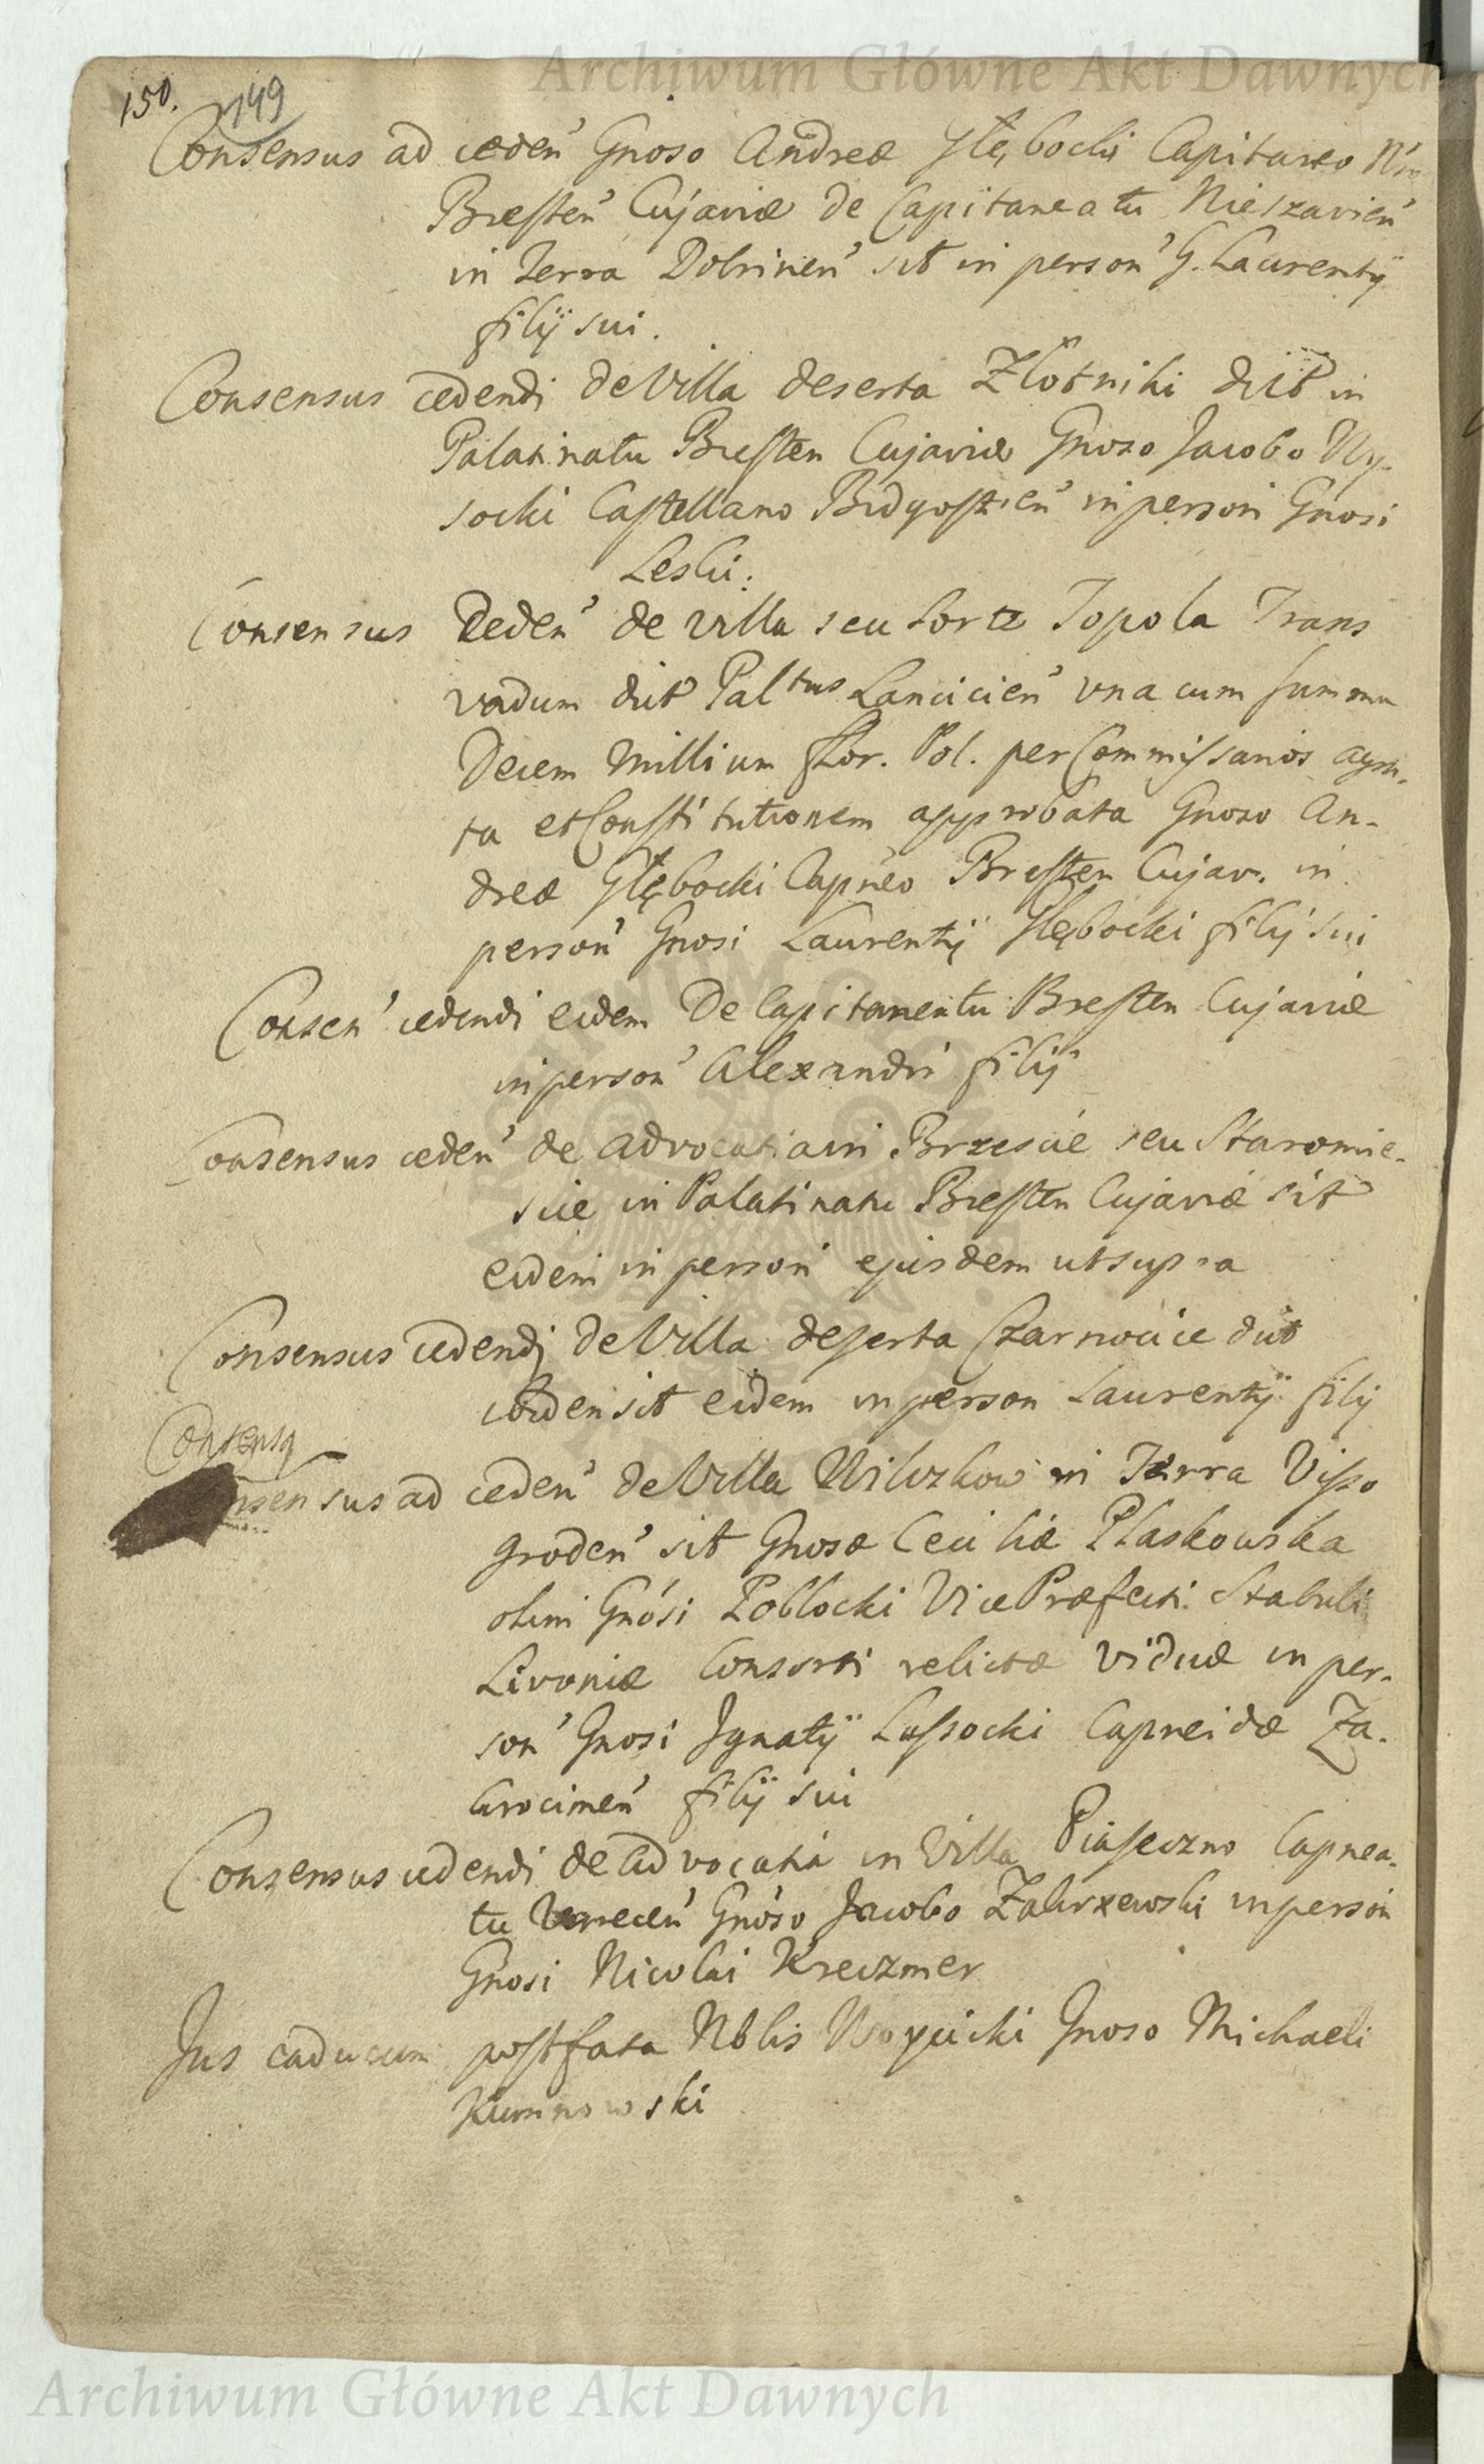 Archiwum Główne Akt Dawnych
150. 149
Consensus ad ceden' Gnoso Andreæ Głębocki Capitaneo
Bresten' Cujaviæ de Capitaneatu Nieszavien'
in Terra Dobrinen' sit in person' G. Laurentÿ
filÿ sui.
Consensus cedendi de Villa deserta Złotniki dict in
Palatinatu Bresten Cujaviæ Gnoso Jacobo Wy-
socki Castellano Bidgostien' in person Gnosi
Leski.
Consensus Ceden' de villa seu sorte Topola Trans
vadum dict Paltus Lancicien' una cum summa
Decem Millium flor. Pol. per Commissarios agni-
ta et Constitutionem approbata Gnoso An-
dreæ Głębocki Capneo Bresten Cujav. in
person' Gnosi Laurentÿ Głębocki filÿ sui
Consen' cedendi eidem De Capitaneatu Bresten Cujaviæ
in person' Alexandri filÿ
Consensus ceden' de Advocatia in Brzescie seu Staromie-
scie in Palatinatu Bresten Cujaviæ sit
eidem in person ejusdem ut supra
Consensus cedendi de Villa deserta Czarnocice dict
ibidem sit eidem in person Laurentÿ filÿ
Consensq
nsensus ad ceden' de Villa Wilczkow in Terra Visso
groden' sit Gnosæ Ceciliæ Płaskowska
olim Gnosi Zobłocki Vice Præfecti Stabuli
Livoniæ Consorti relictæ viduæ in per-
son' Gnosi Ignatÿ Lassocki Capneidæ Za-
krocimen' filÿ sui
Consensus cedendi de Advocatia in Villa Piaseczno Capnea-
tu Varecen' Gnoso Jacobo Zakrzewski in person
Gnosi Nicolai Kreczmer
Jus caducum post fata Nblis Woycicki Gnoso Michaeli
Kumnowski
Archiwum Główne Akt Dawnych